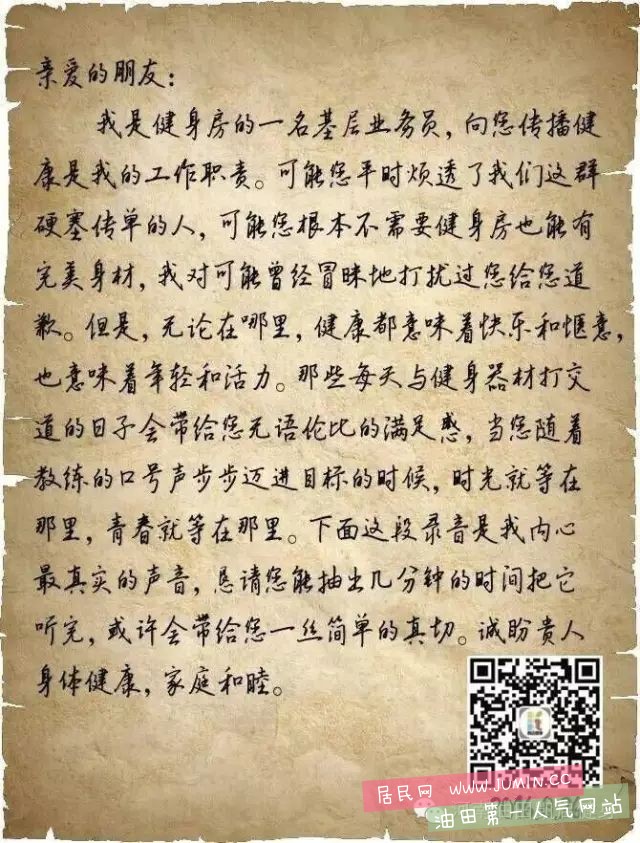 亲爱的朋友：
我是健身房的一名基层业务员，向您传播健
康是我的工作职责。可能您平时烦透了我们这群
硬塞传单的人，可能您根本不需要健身房也能有
完美身材，我对可能曾经冒昧地打扰过您给您道
歉。但是，无论在哪里，健康都意味着快乐和惬意，
也意味着年轻和活力。那些每天与健身器材打交
道的日子会带给您无语伦比的满足感，当您随着
教练的口号声步步迈进目标的时候，时光就等在
那里，青春就等在那里。下面这段录音是我内心
最真实的声音，恳请您能抽出几分钟的时间把它
听完，或许会带给您一丝简单的真切。诚盼贵人
身体健康，家庭和睦。
居民网 WWW.JUMIN.CC
油田第一人气网站